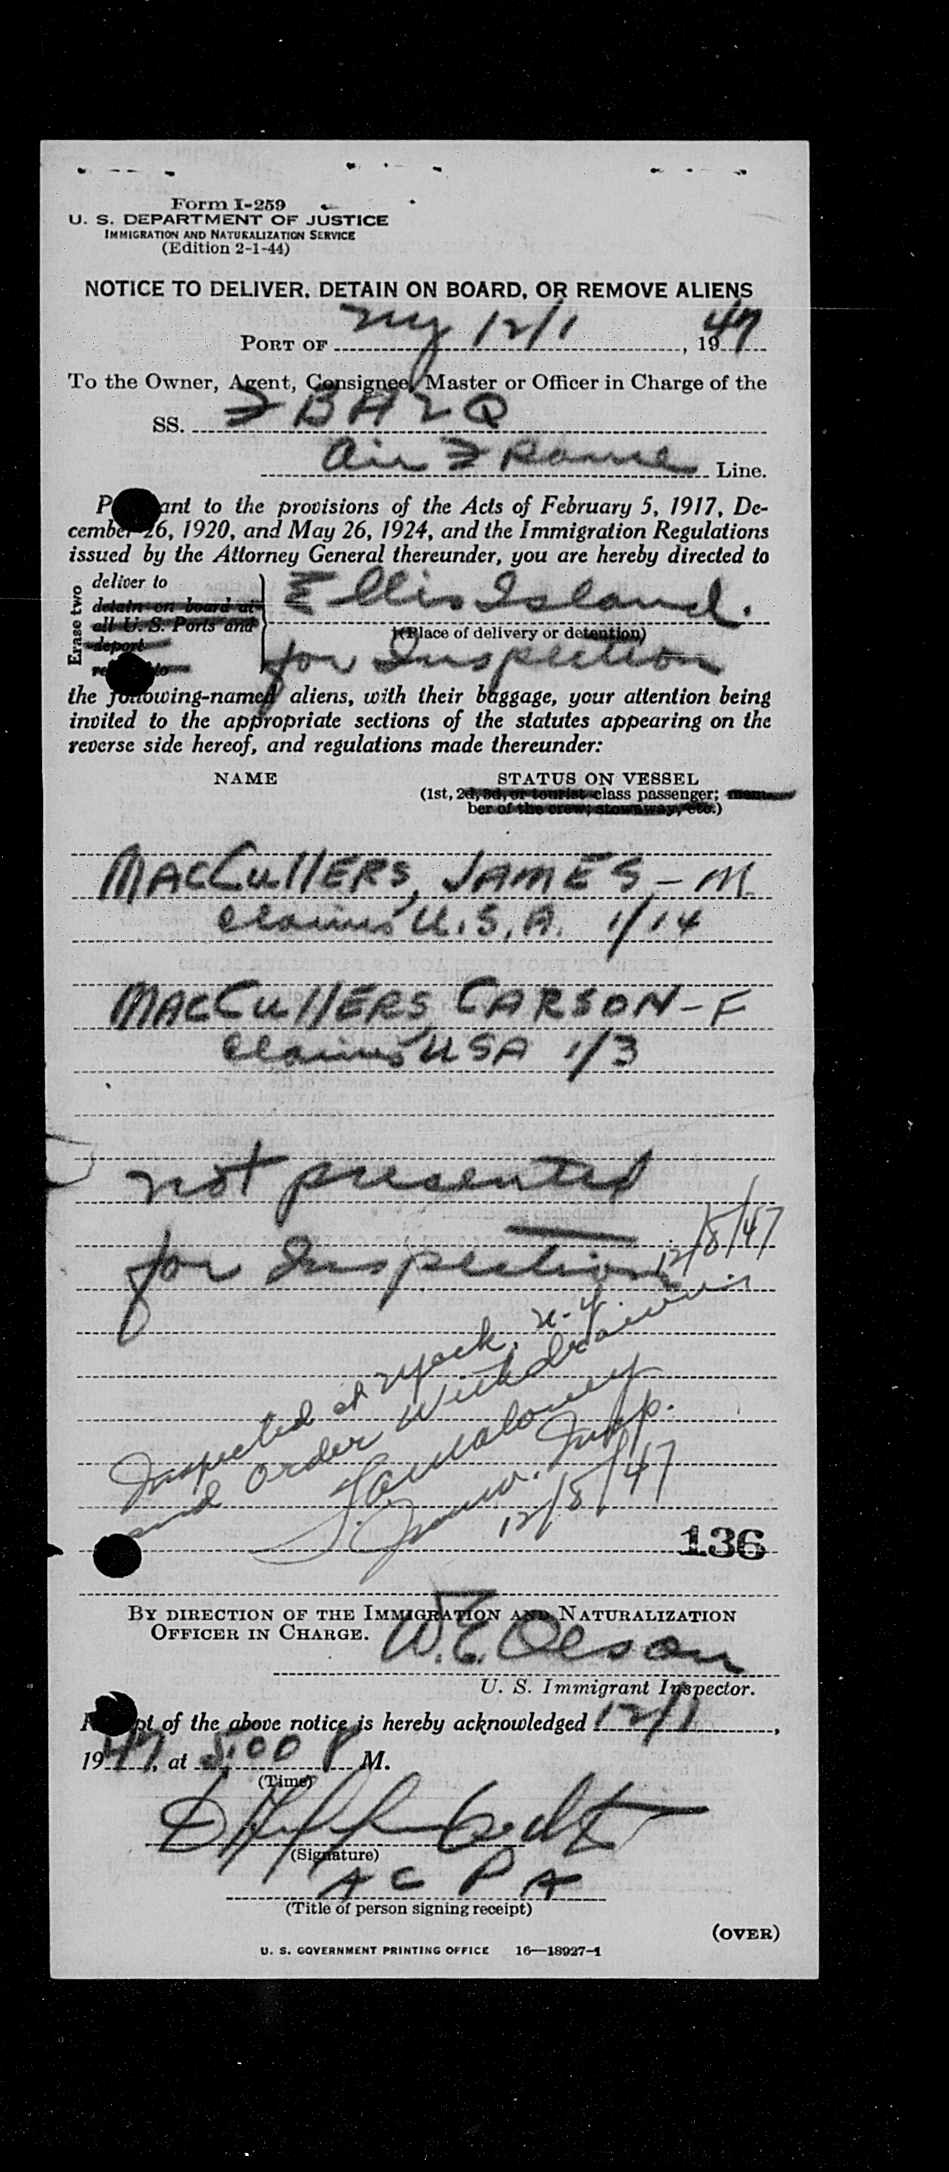 Form I-259
U. S. DEPARTMENT OF JUSTICE
IMMIGRATION AND NATURALIZATION SERVICE
(Edition 2-1-44)
NOTICE TO DELIVER, DETAIN ON BOARD, OR REMOVE ALIENS
PORT OF NY 12/1, 1947
To the Owner, Agent, Consignee, Master or Officer in Charge of the
SS. F BAZQ
Air France Line.
Pursuant to the provisions of the Acts of February 5, 1917, De-
cember 26, 1920, and May 26, 1924, and the Immigration Regulations
issued by the Attorney General thereunder, you are hereby directed to
Erase two
deliver to
detain on board at
all U. S. Ports and
deport
Ellis Island.
(Place of delivery or detention)
for Inspection
the following-named aliens, with their baggage, your attention being
invited to the appropriate sections of the statutes appearing on the
reverse side hereof, and regulations made thereunder:
NAME STATUS ON VESSEL
(1st, 2d, 3d, or tourist class passenger; mem-
ber of the crew; stowaway, etc.)
MacCullERS, JAMES - M
claims U.S.A. 1/14
MacCullERS CARSON - F
claims USA 1/3
not presented
for Inspection 12/8/47
Inspected at Nyack, N.Y.
and order withdrawn
Imm. Insp.
12/8/47
136
BY DIRECTION OF THE IMMIGRATION AND NATURALIZATION
OFFICER IN CHARGE.
W.E. Olson
U. S. Immigrant Inspector.
Receipt of the above notice is hereby acknowledged 12/1,
1947, at 5:00 P M.
(Time)
(Signature)
A C P A
(Title of person signing receipt)
(OVER)
U. S. GOVERNMENT PRINTING OFFICE 16—18927-1